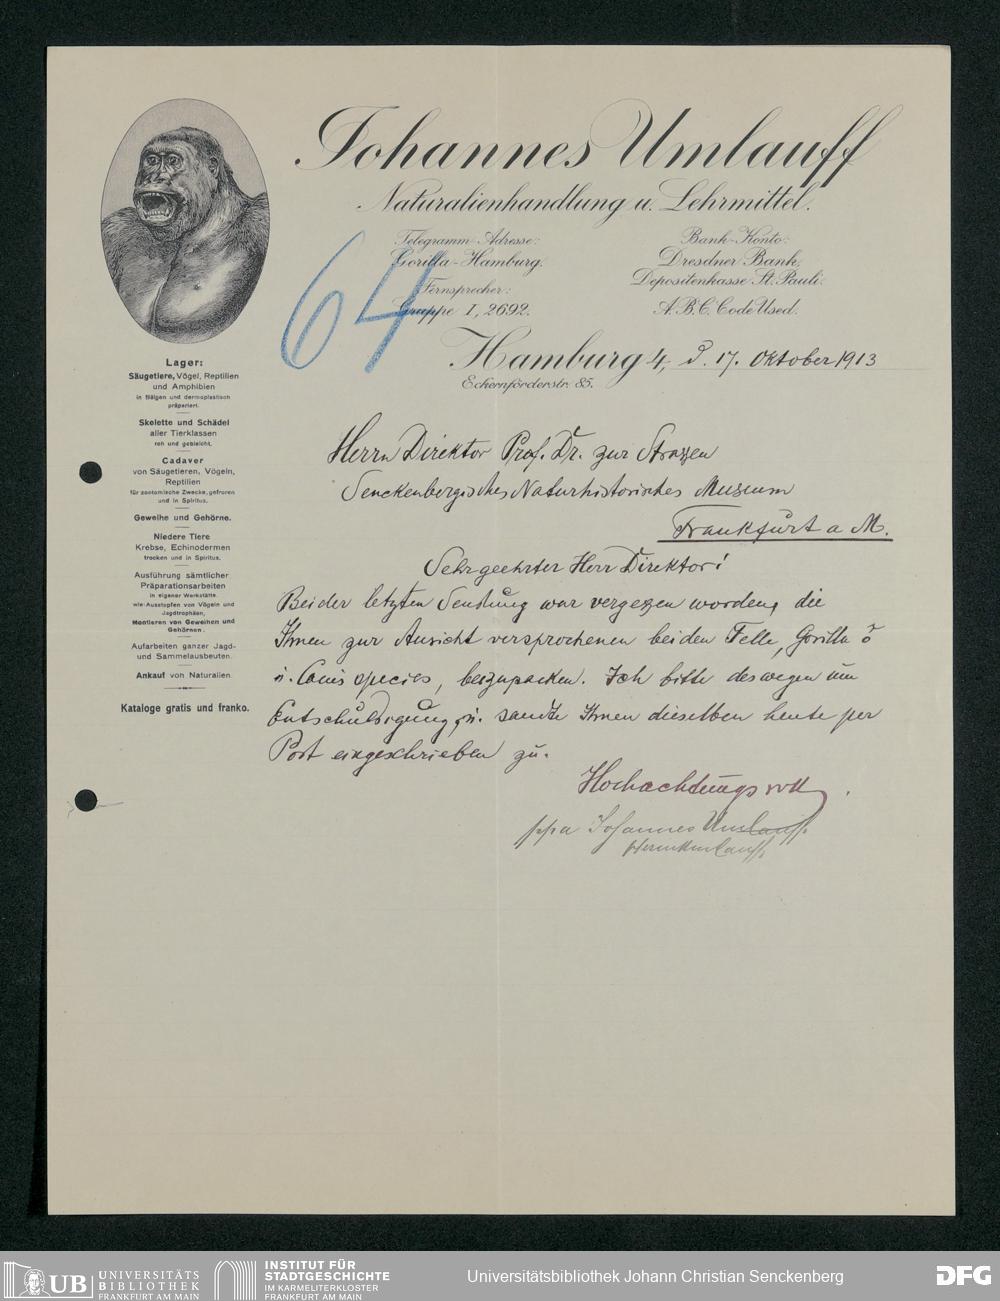 Johannes Umlauff
Naturalienhandlung u. Lehrmittel.
Telegramm-Adresse:
Gorilla-Hamburg.
Fernsprecher:
Gruppe I, 2692.
Bank-Konto:
Dresdner Bank,
Depositenkasse St. Pauli.
A.B.C. Code Used.
64
Hamburg 4, d. 17. Oktober 1913
Eckernförderstr. 85.
Lager:
Säugetiere, Vögel, Reptilien
und Amphibien
in Bälgen und dermoplastisch
präpariert.
Skelette und Schädel
aller Tierklassen
roh und gebleicht.
Cadaver
von Säugetieren, Vögeln,
Reptilien
für zootomische Zwecke, gefroren
und in Spiritus.
Geweihe und Gehörne.
Niedere Tiere
Krebse, Echinodermen
trocken und in Spiritus.
Ausführung sämtlicher
Präparationsarbeiten
in eigener Werkstätte
wie Ausstopfen von Vögeln und
Jagdtrophäen,
Montieren von Geweihen und
Gehörnen.
Aufarbeiten ganzer Jagd-
und Sammelausbeuten.
Ankauf von Naturalien.
Kataloge gratis und franko.
Herrn Direktor Prof. Dr. zur Strassen
Senckenbergisches Naturhistorisches Museum
Frankfurt a M.
Sehr geehrter Herr Direktor!
Bei der letzten Sendung war vergessen worden, die
Ihnen zur Ansicht versprochenen beiden Felle, Gorilla
u. Canis species, beizupacken. Ich bitte deswegen um
Entschuldigung, u. sandte Ihnen dieselben heute per
Post eingeschrieben zu.
Hochachtungsvoll
ppa Johannes Umlauff
UB UNIVERSITÄTS
BIBLIOTHEK
FRANKFURT AM MAIN
INSTITUT FÜR
STADTGESCHICHTE
IM KARMELITERKLOSTER
FRANKFURT AM MAIN
Universitätsbibliothek Johann Christian Senckenberg
DFG